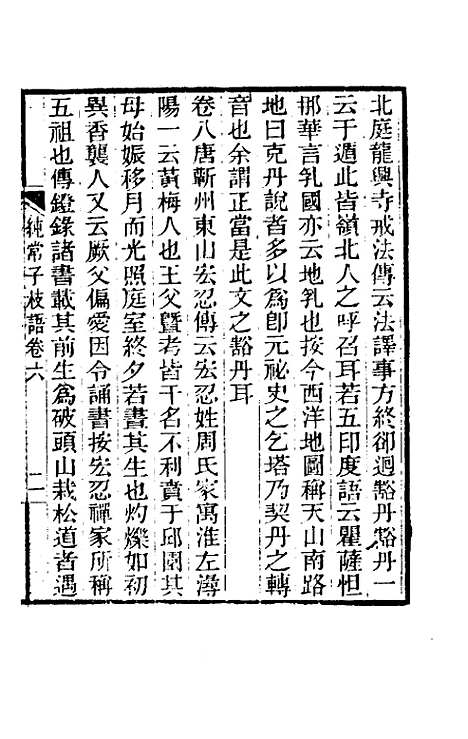 北庭龍興寺戒法傳云法譯事方終卻迴豁丹豁丹一
云于遁此皆嶺北人之呼召耳若五印度語云瞿薩怛
挪華言乳國亦云地乳也按今西洋地圖稱天山南路
地曰克丹說者多以爲卽元祕史之乞塔乃契丹之轉
音也余謂正當是此文之豁丹耳
卷八唐蘄州東山宏忍傳云宏忍姓周氏家寓淮左潯
陽一云黃梅人也王父曁考皆干名不利賁于邱園其
母始娠移月而光照庭室終夕若晝其生也灼爍如初
異香襲人又云厥父偏愛因令誦書按宏忍禪家所稱
五祖也傳鐙錄諸書載其前生爲破頭山栽松道者遇
純常子枝語卷六
二